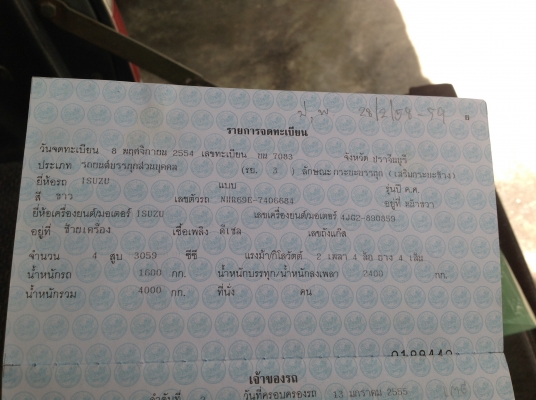 ป.พ 28/2/58-59
รายการจดทะเบียน
วันจดทะเบียน 8 พฤศจิกายน 2554 เลขทะเบียน 7083 จังหวัด ปราจีนบุรี
ประเภท รถยนต์บรรทุกส่วนบุคคล (รย. 3 ) ลักษณะ กระบะบรรทุก (เสริมกระบะข้าง)
ยี่ห้อรถ ISUZU แบบ รุ่นปี ค.ศ.
สี ขาว เลขตัวรถ NHR69E-7406684 อยู่ที่ หน้าขวา
ยี่ห้อเครื่องยนต์/มอเตอร์ ISUZU เลขเครื่องยนต์/มอเตอร์ 4JG2-890859
อยู่ที่ ซ้ายเครื่อง เชื้อเพลิง ดีเซล เลขถังแก๊ส
จำนวน 4 สูบ 3059 ซีซี แรงม้า/กิโลวัตต์ 2 เพลา 4 ล้อ ยาง 4 เส้น
น้ำหนักรถ 1600 กก. น้ำหนักบรรทุก/น้ำหนักลงเพลา 2400 กก.
น้ำหนักรวม 4000 กก. ที่นั่ง คน
เจ้าของรถ
ลำดับที่ 2 วันที่ครอบครองรถ 13 มกราคม 2555